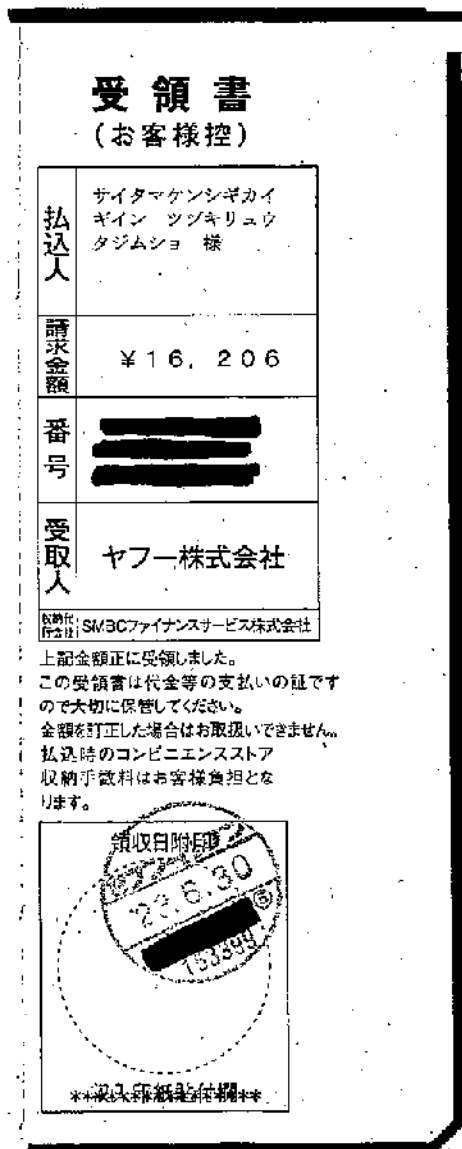 受領書
(お客様控)
払込人
サイタマケンシギカイ
ギイン ツヅキリュウ
タジムショ 様
請求金額
¥16,206
番号
受取人
ヤフー株式会社
収納代行会社
SMBCファイナンスサービス株式会社
上記金額正に受領しました。
この受領書は代金等の支払いの証です
ので大切に保管してください。
金額を訂正した場合はお取扱いできません。
払込時のコンビニエンスストア
収納手数料はお客様負担とな
ります。
領収日附印
23.6.30
153399